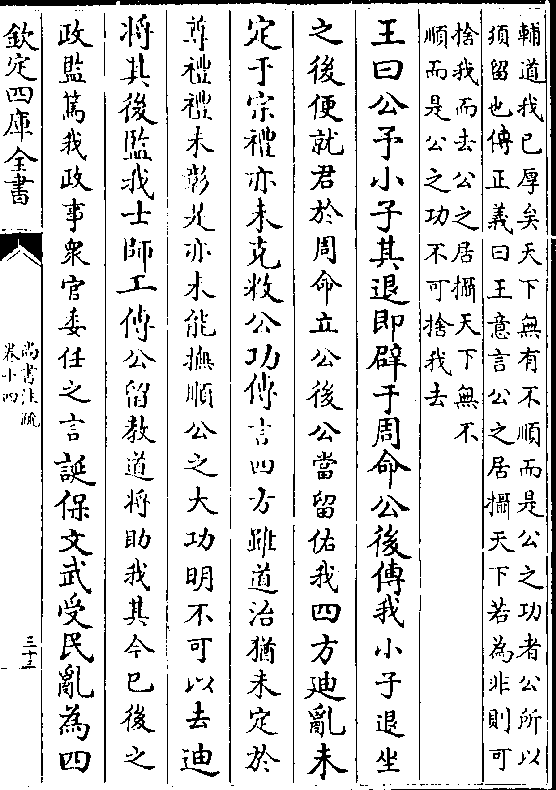 輔道我已厚矣天下無有不順而是公之功者公所以
須留也傳正義曰王意言公之居攝天下若為非則可
捨我而去公之居攝天下無不
順而是公之功不可捨我去
王曰公予小子其退即辟于周命公後傳我小子退坐
之後便就君於周命立公後公當留佑我四方迪亂未
定于宗禮亦未克敉公功傳言四方雖道治猶未定於
尊禮禮未彰是亦未能撫順公之大功明不可以去迪
將其後監我士師工傳公留教道將助我其今已後之
政監篤我政事衆官委任之言誕保文武受民亂為四
欽定四庫全書
尚書注疏
卷十四
三十三